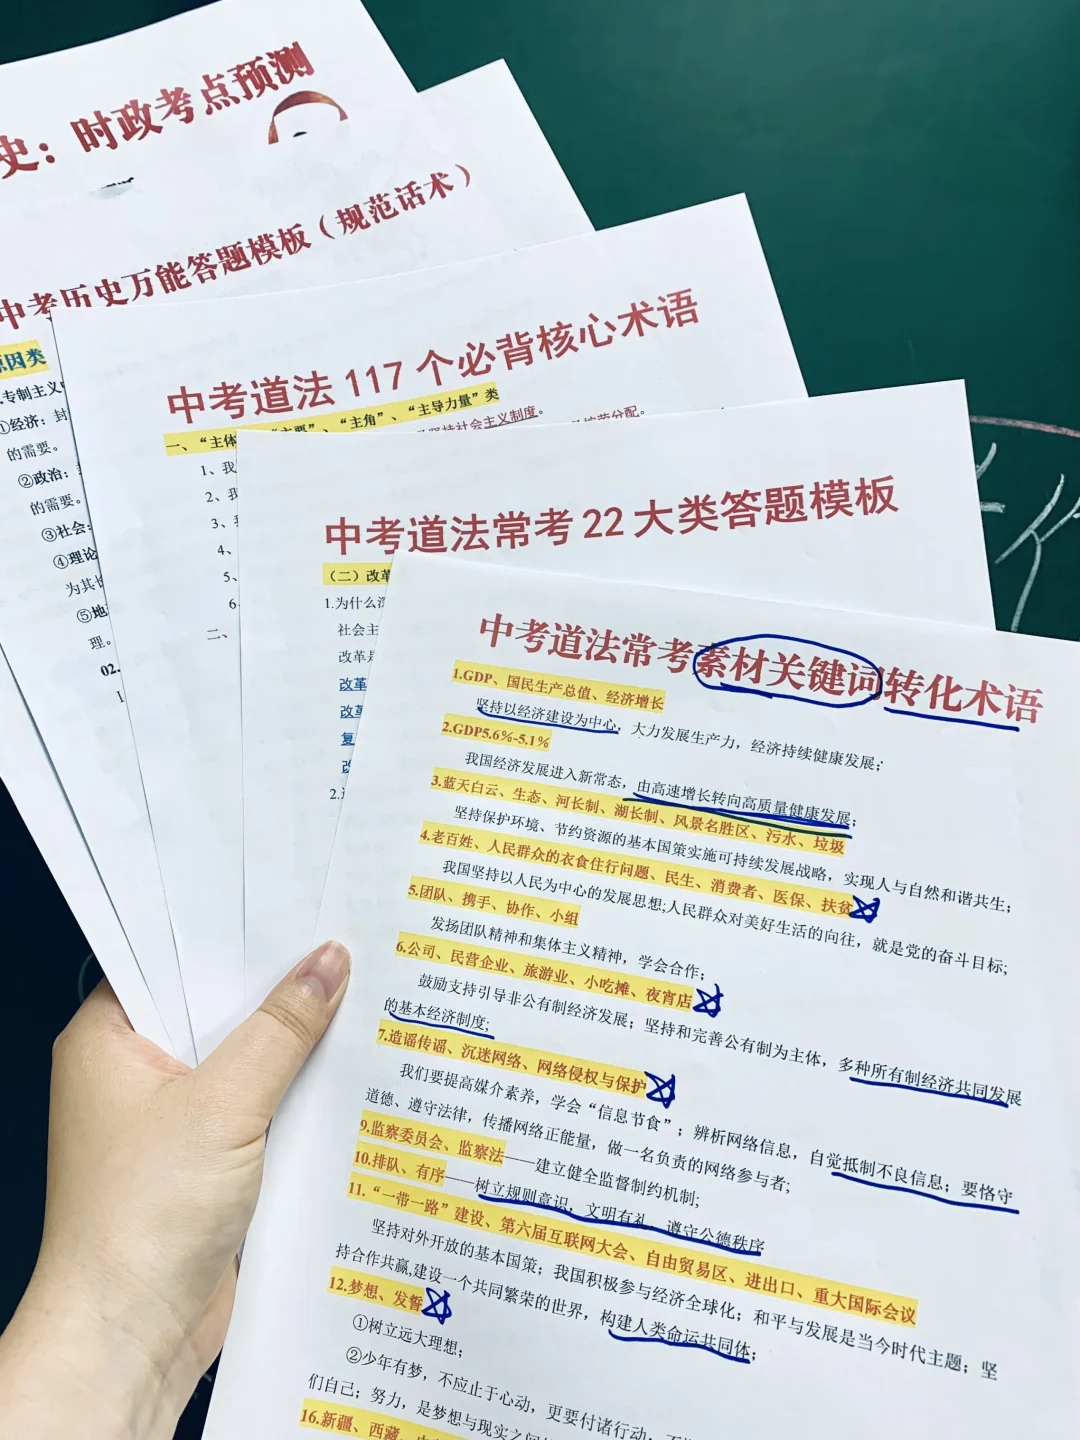 史：时政考点预测
中考历史万能答题模板（规范话术）
原因类
①经济：封
的需要。
②政治：
的需要。
③社会：
④理论
⑤地
理。
02.
中考道法117个必背核心术语
一、“主体”、“主要”、“主角”、“主导力量”类
坚持社会主义制度。
按劳分配。
1、我
2、我
3、
4、
5、
6、
二、
中考道法常考22大类答题模板
（二）改革
1.为什么深
社会主
改革是
改革
改革
2.
中考道法常考素材关键词转化术语
1.GDP、国民生产总值、经济增长
坚持以经济建设为中心，大力发展生产力，经济持续健康发展；
2.GDP5.6%-5.1%
我国经济发展进入新常态，由高速增长转向高质量健康发展；
3.蓝天白云、生态、河长制、湖长制、风景名胜区、污水、垃圾
坚持保护环境、节约资源的基本国策实施可持续发展战略，实现人与自然和谐共生；
4.老百姓、人民群众的衣食住行问题、民生、消费者、医保、扶贫
我国坚持以人民为中心的发展思想;人民群众对美好生活的向往，就是党的奋斗目标;
5.团队、携手、协作、小组
发扬团队精神和集体主义精神，学会合作；
6.公司、民营企业、旅游业、小吃摊、夜宵店
鼓励支持引导非公有制经济发展；坚持和完善公有制为主体，多种所有制经济共同发展
的基本经济制度;
7.造谣传谣、沉迷网络、网络侵权与保护
我们要提高媒介素养，学会“信息节食”；辨析网络信息，自觉抵制不良信息；要恪守
道德、遵守法律，传播网络正能量，做一名负责的网络参与者;
9.监察委员会、监察法——建立健全监督制约机制;
10.排队、有序——树立规则意识，文明有礼，遵守公德秩序
11.“一带一路”建设、第六届互联网大会、自由贸易区、进出口、重大国际会议
坚持对外开放的基本国策；我国积极参与经济全球化；和平与发展是当今时代主题；坚
持合作共赢,建设一个共同繁荣的世界，构建人类命运共同体；
12.梦想、发誓
①树立远大理想；
②少年有梦，不应止于心动，更要付诸行动，
们自己；努力，是梦想与现实之间
16.新疆、西藏、